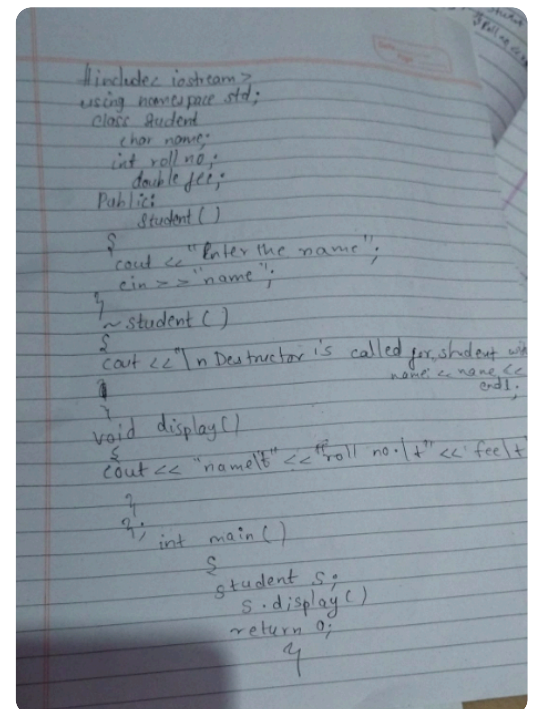 #include< iostream>
using namespace std;
class Student
char name;
int roll no;
double fee;
Public:
student ( )
{
cout << "Enter the name";
cin >> "name";
}
~ student ( )
{
cout << "\n Destructor is called for student with
name: << name <<
endl;
}
void display()
{
cout << "name\t" << "roll no.\t" << fee\t
}
};
int main ( )
{
student s;
s.display( )
return 0;
}